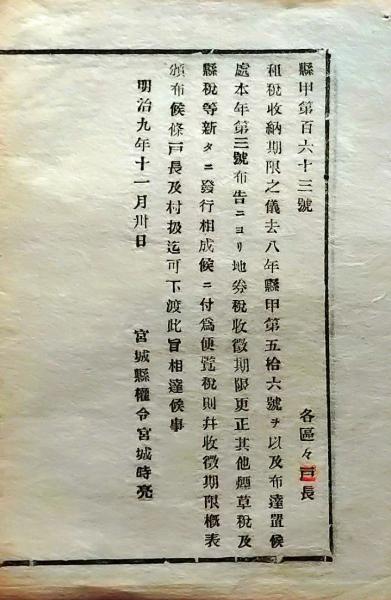 縣甲第百六十三號
各區々戸長
租税收納期限之儀去八年縣甲第五拾六號ヲ以及布達置候
處本年第三號布告ニヨリ地券税收徴期限更正其他煙草税及
縣税等新タニ發行相成候ニ付爲便覧税則幷收徴期限概表
頒布候條戸長及村扱迄可下渡此旨相達候事
明治九年十一月卅日
宮城縣權令宮城時亮